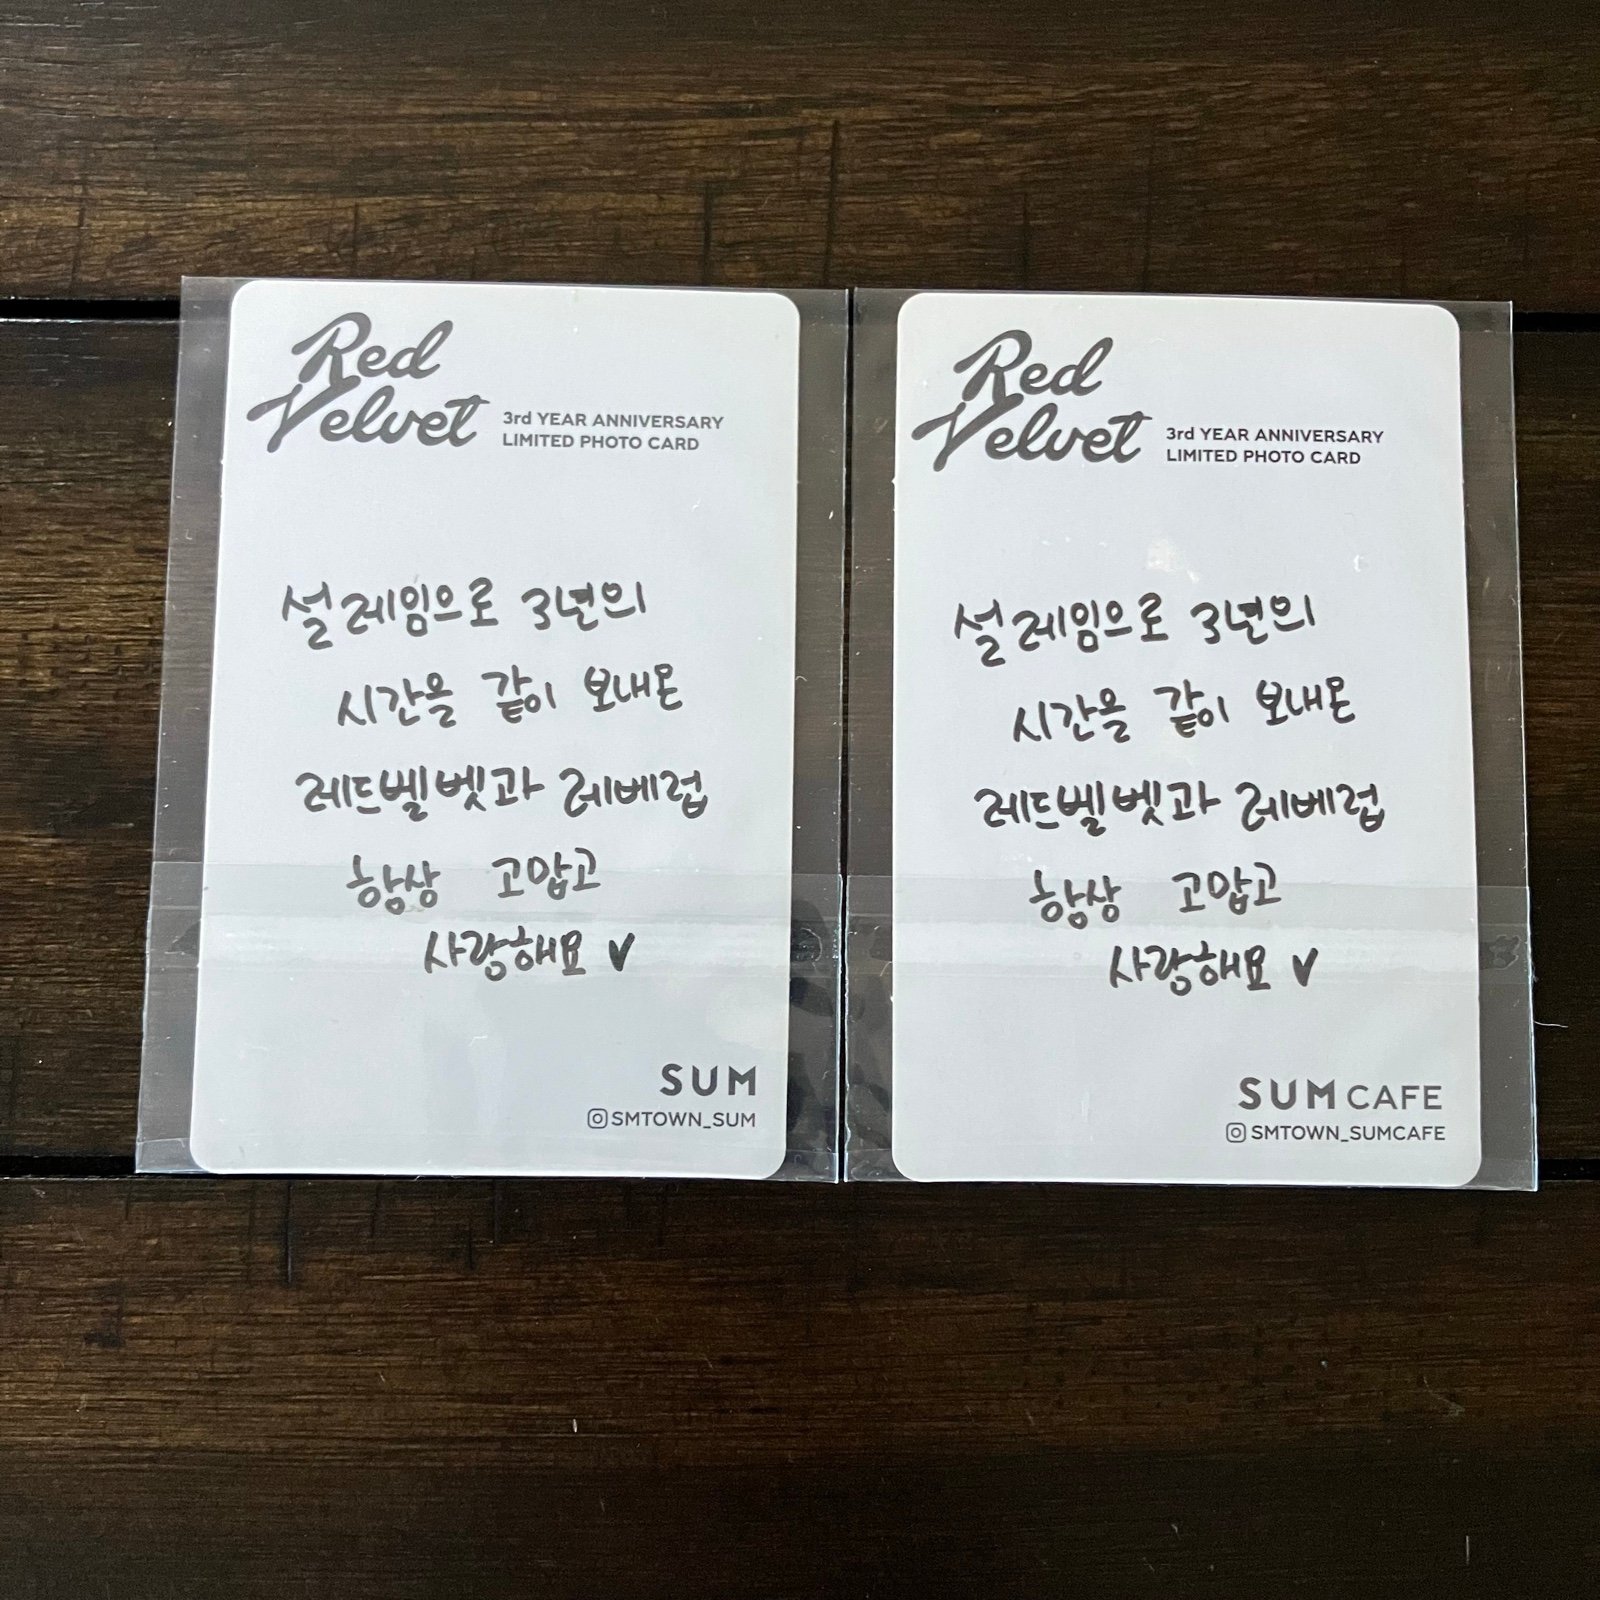 Red
Velvet
3rd YEAR ANNIVERSARY
LIMITED PHOTO CARD
설레임으로 3년의
시간을 같이 보내온
레드벨벳과 레베럽
항상 고맙고
사랑해요 ♥
SUM
SMTOWN_SUM
Red
Velvet
3rd YEAR ANNIVERSARY
LIMITED PHOTO CARD
설레임으로 3년의
시간을 같이 보내온
레드벨벳과 레베럽
항상 고맙고
사랑해요 ♥
SUM CAFE
SMTOWN_SUMCAFE